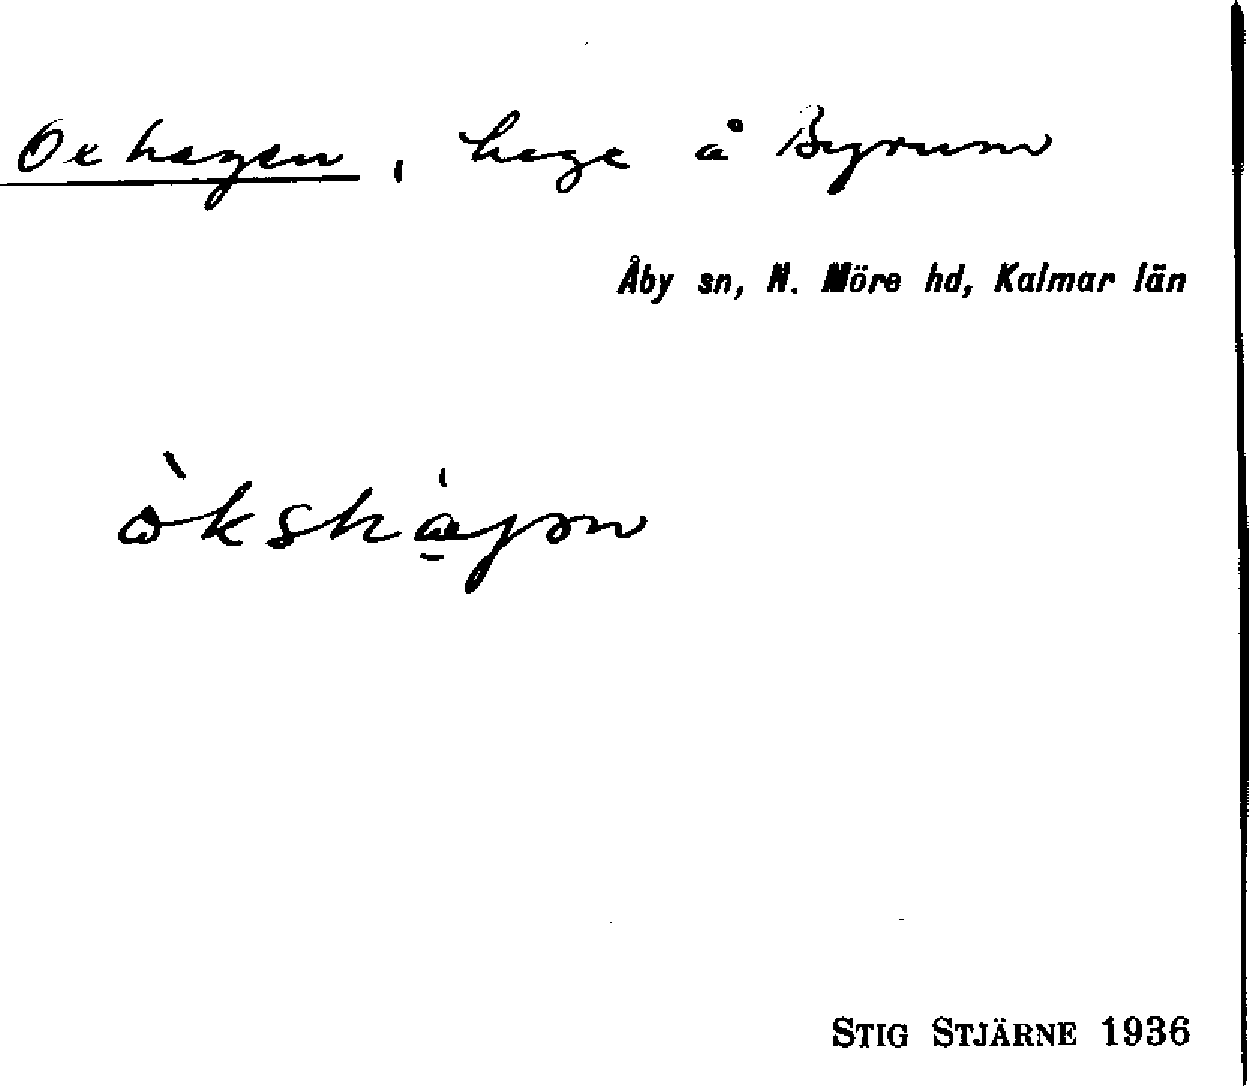 Oxhagen, hage å Byrum
Åby sn, N. Möre hd, Kalmar län
STIG STJÄRNE 1936